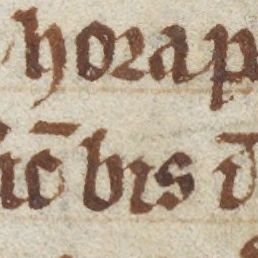 hora p
ic̄ bis d̄